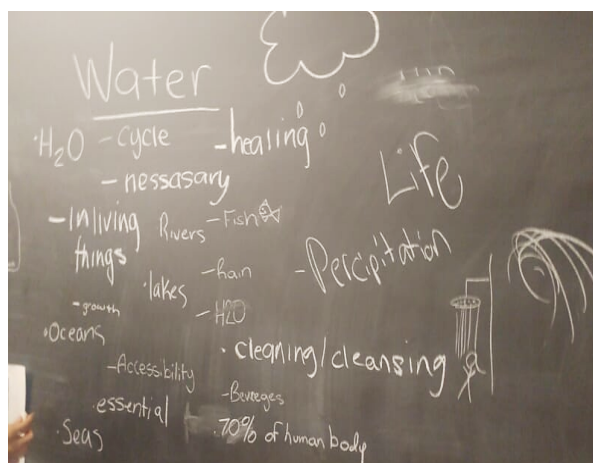 Water
·H₂O
- cycle
- healing
- nessasary
Life
- In living
things
Rivers
- Fish
- Percipitation
·lakes
- Rain
- growth
- H2O
·Oceans
· cleaning/cleansing
- Accessibility
- Bevreges
essential
·70% of human body
·Seas